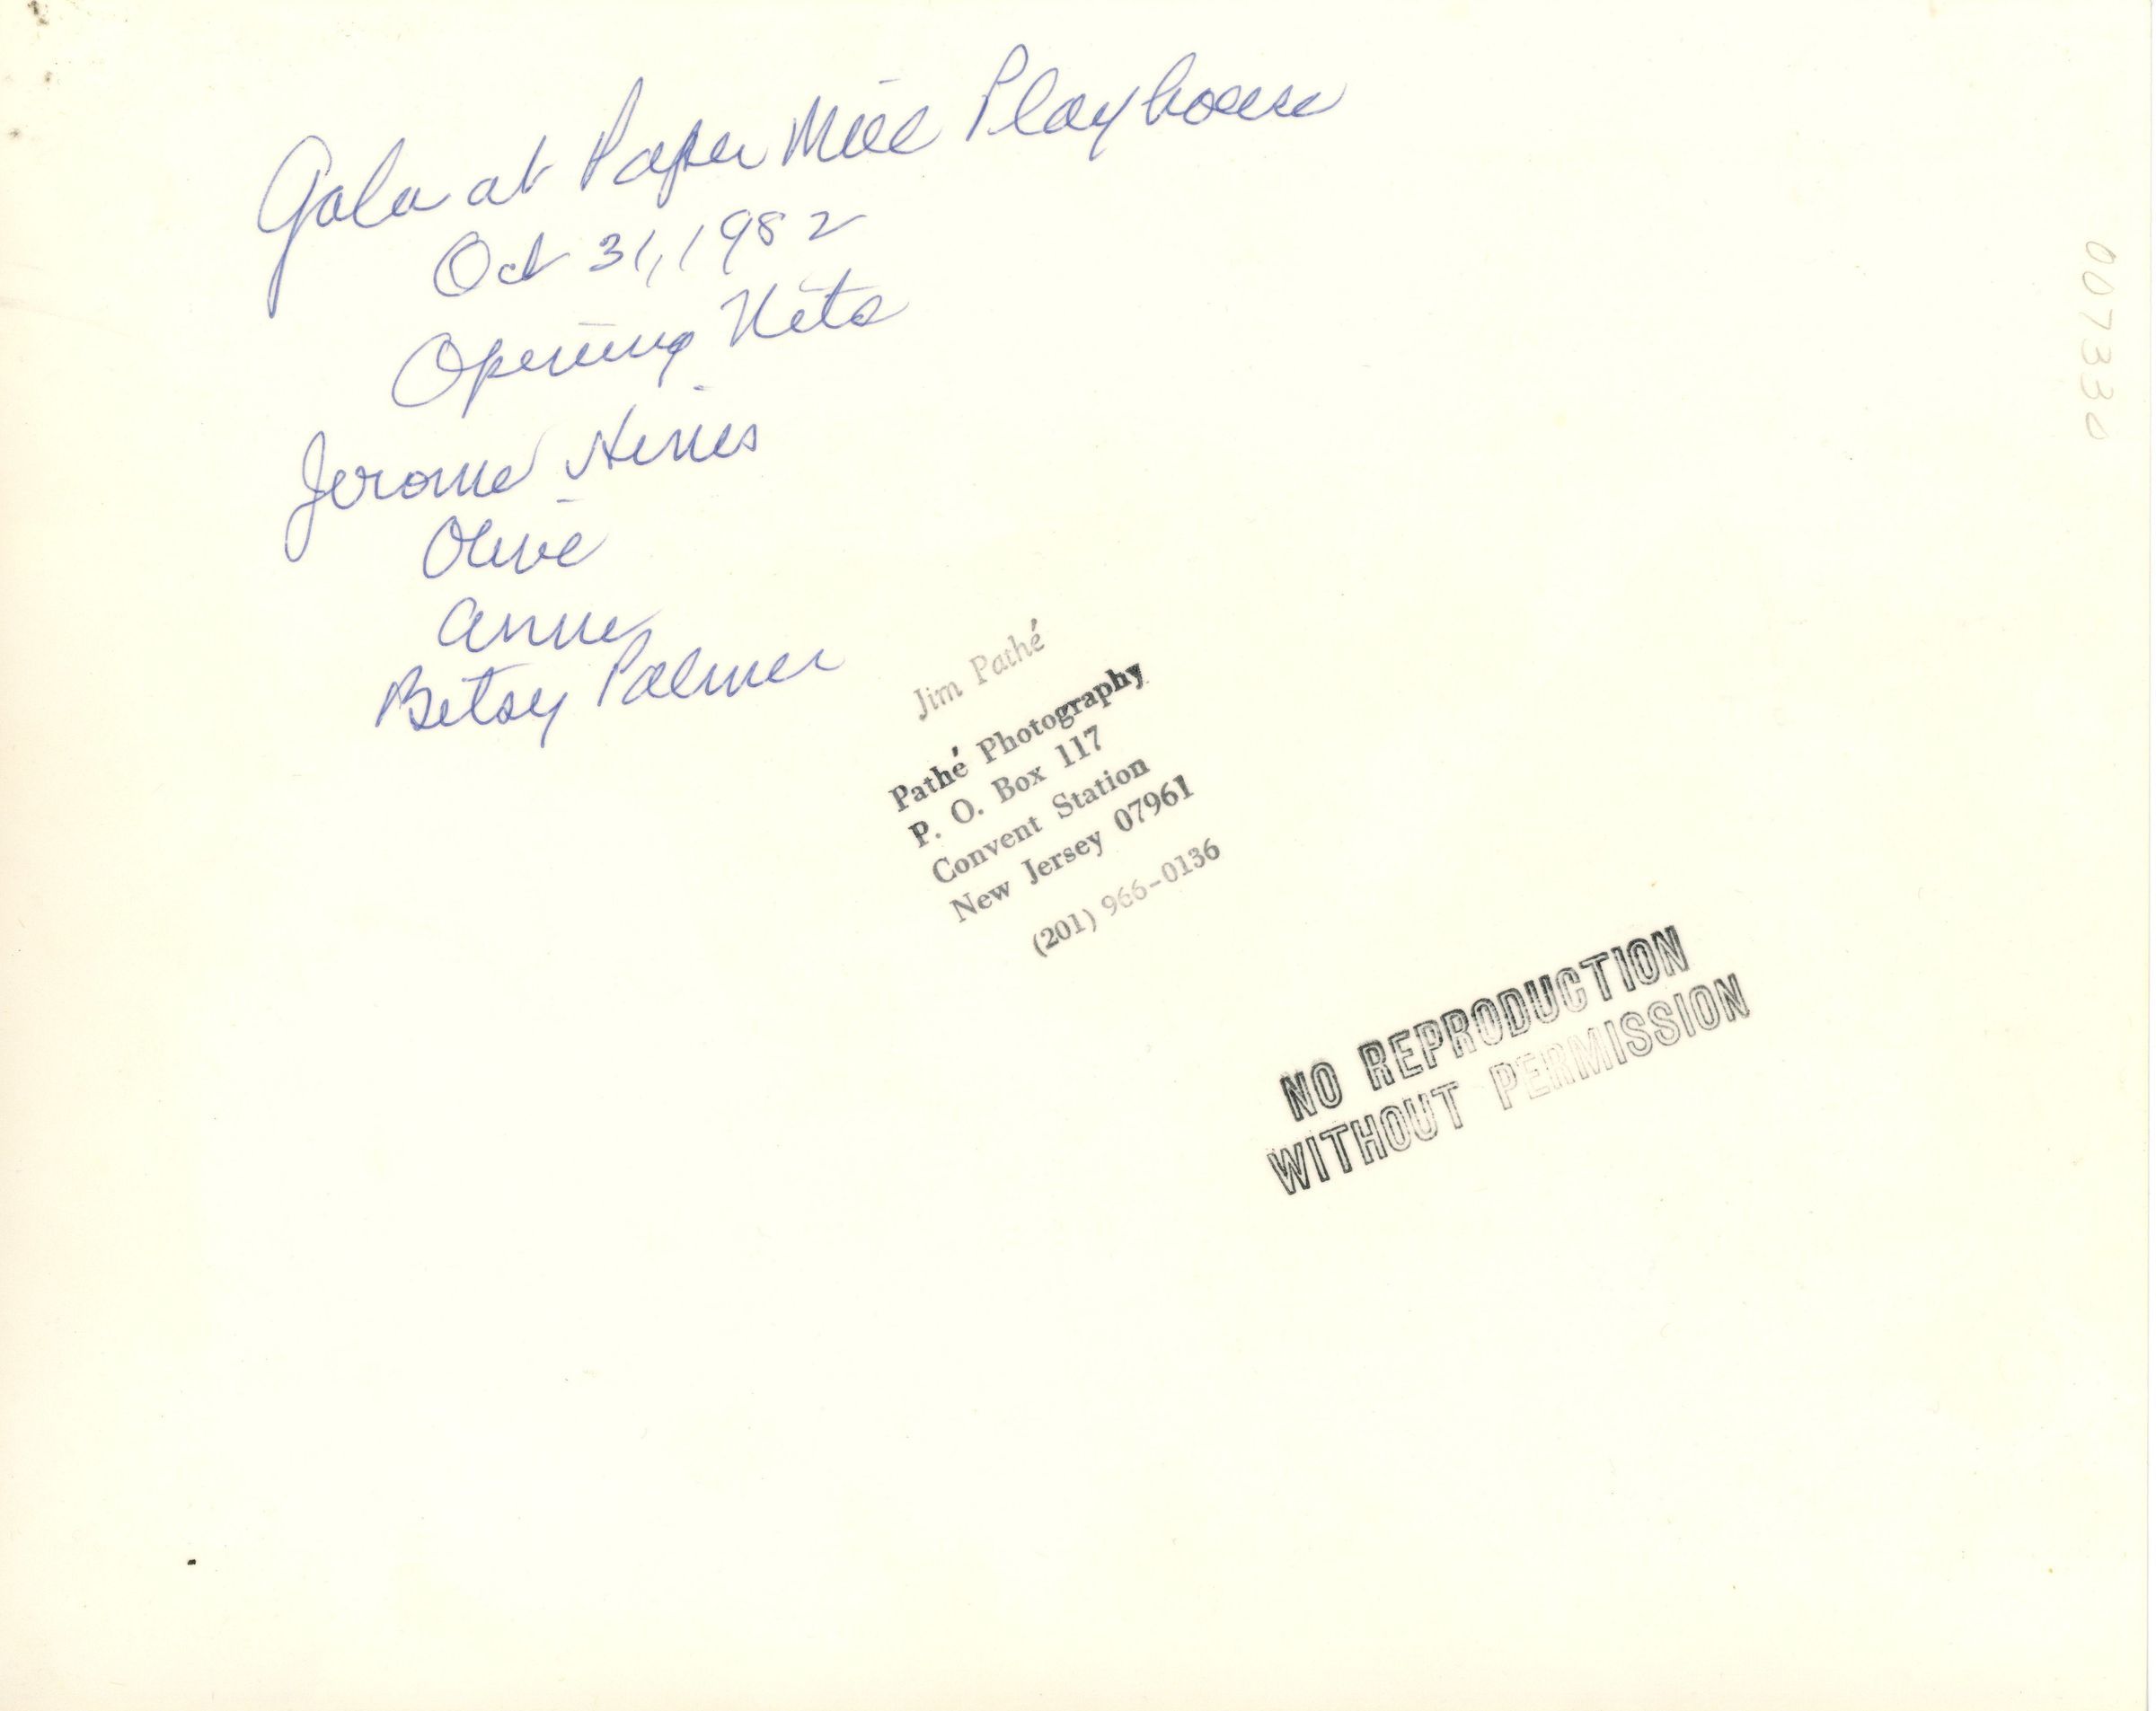 Gala at Paper Mill Playhouse
Oct 31, 1982
Opening Nite
Jerome Hines
Olive
Anne
Betsy Palmer
Jim Pathé
Pathé Photography
P. O. Box 117
Convent Station
New Jersey 07961
(201) 966-0136
NO REPRODUCTION
WITHOUT PERMISSION
007330